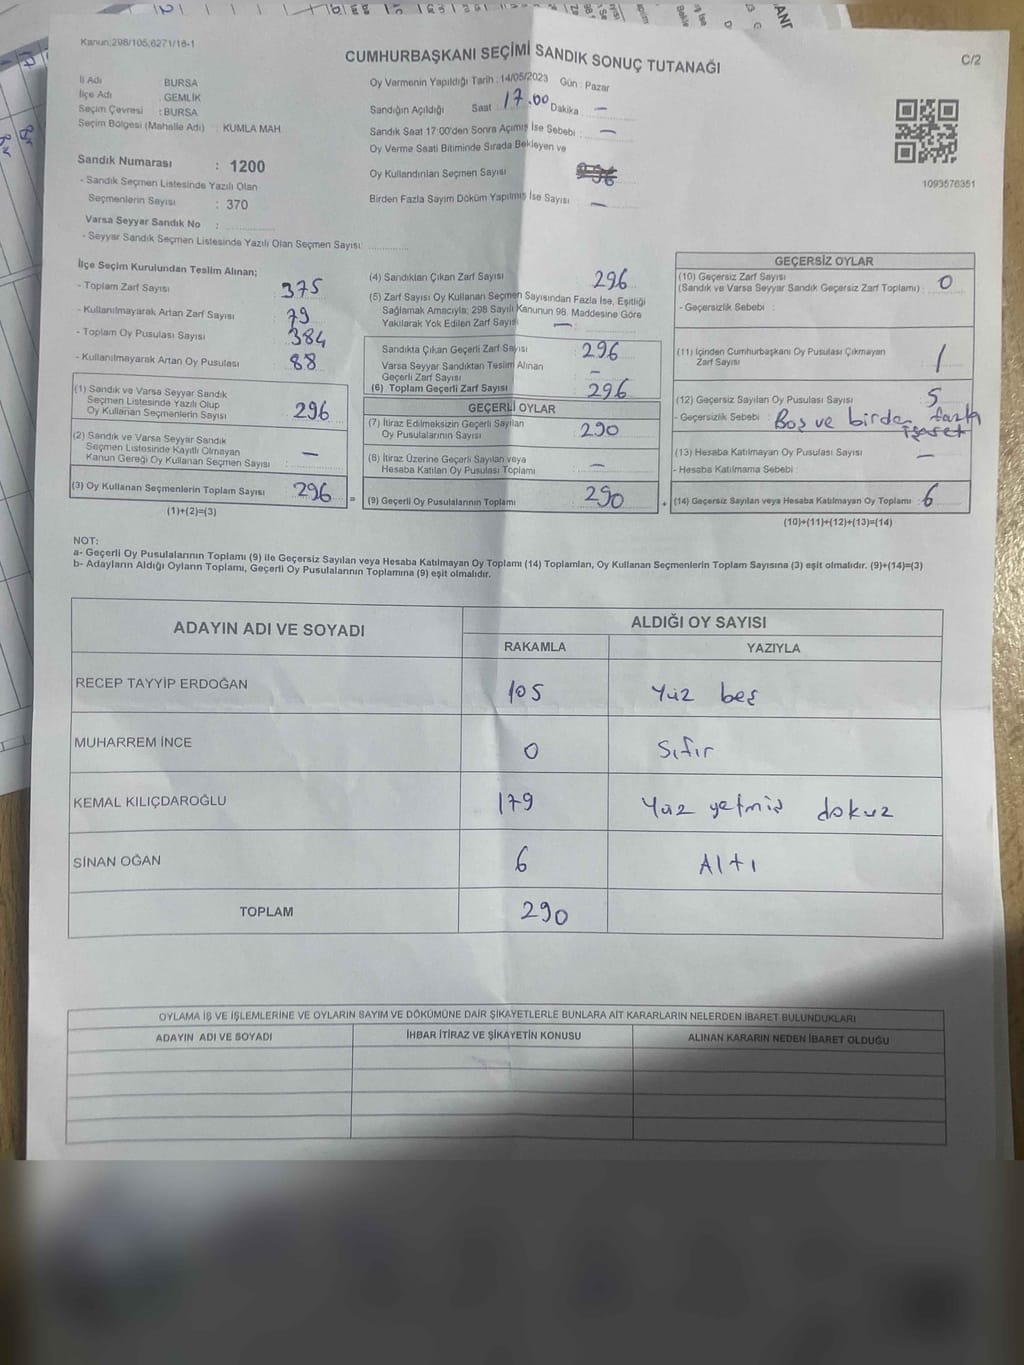 Kanun:298/105,6271/16-1
CUMHURBAŞKANI SEÇİMİ SANDIK SONUÇ TUTANAĞI
C/2
İl Adı : BURSA
İlçe Adı : GEMLİK
Seçim Çevresi : BURSA
Seçim Bölgesi (Mahalle Adı) : KUMLA MAH
Sandık Numarası : 1200
- Sandık Seçmen Listesinde Yazılı Olan
Seçmenlerin Sayısı : 370
Varsa Seyyar Sandık No :
- Seyyar Sandık Seçmen Listesinde Yazılı Olan Seçmen Sayısı:
Oy Vermenin Yapıldığı Tarih : 14/05/2023 Gün : Pazar
Sandığın Açıldığı Saat 17.00 Dakika —
Sandık Saat 17:00'den Sonra Açımış İse Sebebi : —
Oy Verme Saati Bitiminde Sırada Bekleyen ve
Oy Kullandırılan Seçmen Sayısı
Birden Fazla Sayım Döküm Yapılmış İse Sayısı —
1093576351
İlçe Seçim Kurulundan Teslim Alınan;
- Toplam Zarf Sayısı : 375
- Kullanılmayarak Artan Zarf Sayısı : 79
- Toplam Oy Pusulası Sayısı : 384
- Kullanılmayarak Artan Oy Pusulası : 88
(1) Sandık ve Varsa Seyyar Sandık
Seçmen Listesinde Yazılı Olup
Oy Kullanan Seçmenlerin Sayısı : 296
(2) Sandık ve Varsa Seyyar Sandık
Seçmen Listesinde Kayıtlı Olmayan
Kanun Gereği Oy Kullanan Seçmen Sayısı : —
(3) Oy Kullanan Seçmenlerin Toplam Sayısı : 296
(1)+(2)=(3)
=
(4) Sandıktan Çıkan Zarf Sayısı 296
(5) Zarf Sayısı Oy Kullanan Seçmen Sayısından Fazla İse, Eşitliği
Sağlamak Amacıyla; 298 Sayılı Kanunun 98. Maddesine Göre
Yakılarak Yok Edilen Zarf Sayısı —
Sandıkta Çıkan Geçerli Zarf Sayısı : 296
Varsa Seyyar Sandıktan Teslim Alınan
Geçerli Zarf Sayısı : —
(6) Toplam Geçerli Zarf Sayısı : 296
GEÇERLİ OYLAR
(7) İtiraz Edilmeksizin Geçerli Sayılan
Oy Pusulalarının Sayısı : 290
(8) İtiraz Üzerine Geçerli Sayılan veya
Hesaba Katılan Oy Pusulası Toplamı : —
(9) Geçerli Oy Pusulalarının Toplamı : 290
+
GEÇERSİZ OYLAR
(10) Geçersiz Zarf Sayısı
(Sandık ve Varsa Seyyar Sandık Geçersiz Zarf Toplamı) : 0
- Geçersizlik Sebebi :
(11) İçinden Cumhurbaşkanı Oy Pusulası Çıkmayan
Zarf Sayısı : 1
(12) Geçersiz Sayılan Oy Pusulası Sayısı : 5
- Geçersizlik Sebebi : Boş ve birden fazla
işaret
(13) Hesaba Katılmayan Oy Pusulası Sayısı : —
- Hesaba Katılmama Sebebi :
(14) Geçersiz Sayılan veya Hesaba Katılmayan Oy Toplamı : 6
(10)+(11)+(12)+(13)=(14)
NOT:
a- Geçerli Oy Pusulalarının Toplamı (9) ile Geçersiz Sayılan veya Hesaba Katılmayan Oy Toplamı (14) Toplamları, Oy Kullanan Seçmenlerin Toplam Sayısına (3) eşit olmalıdır. (9)+(14)=(3)
b- Adayların Aldığı Oyların Toplamı, Geçerli Oy Pusulalarının Toplamına (9) eşit olmalıdır.
ADAYIN ADI VE SOYADI
ALDIĞI OY SAYISI
RAKAMLA YAZIYLA
RECEP TAYYİP ERDOĞAN 105 Yüz beş
MUHARREM İNCE 0 Sıfır
KEMAL KILIÇDAROĞLU 179 Yüz yetmiş dokuz
SİNAN OĞAN 6 Altı
TOPLAM 290
OYLAMA İŞ VE İŞLEMLERİNE VE OYLARIN SAYIM VE DÖKÜMÜNE DAİR ŞİKAYETLERLE BUNLARA AİT KARARLARIN NELERDEN İBARET BULUNDUKLARI
ADAYIN ADI VE SOYADI İHBAR İTİRAZ VE ŞİKAYETİN KONUSU ALINAN KARARIN NEDEN İBARET OLDUĞU